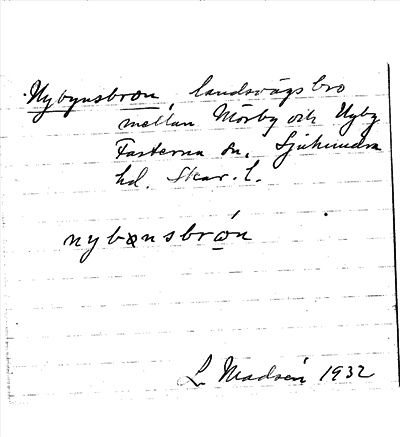 Nybynsbron, landsvägsbro
mellan Mörby och Nyby
Fasterna sn, Sjuhundra
hd. L.
nybnsbrón
L Madsén 1932